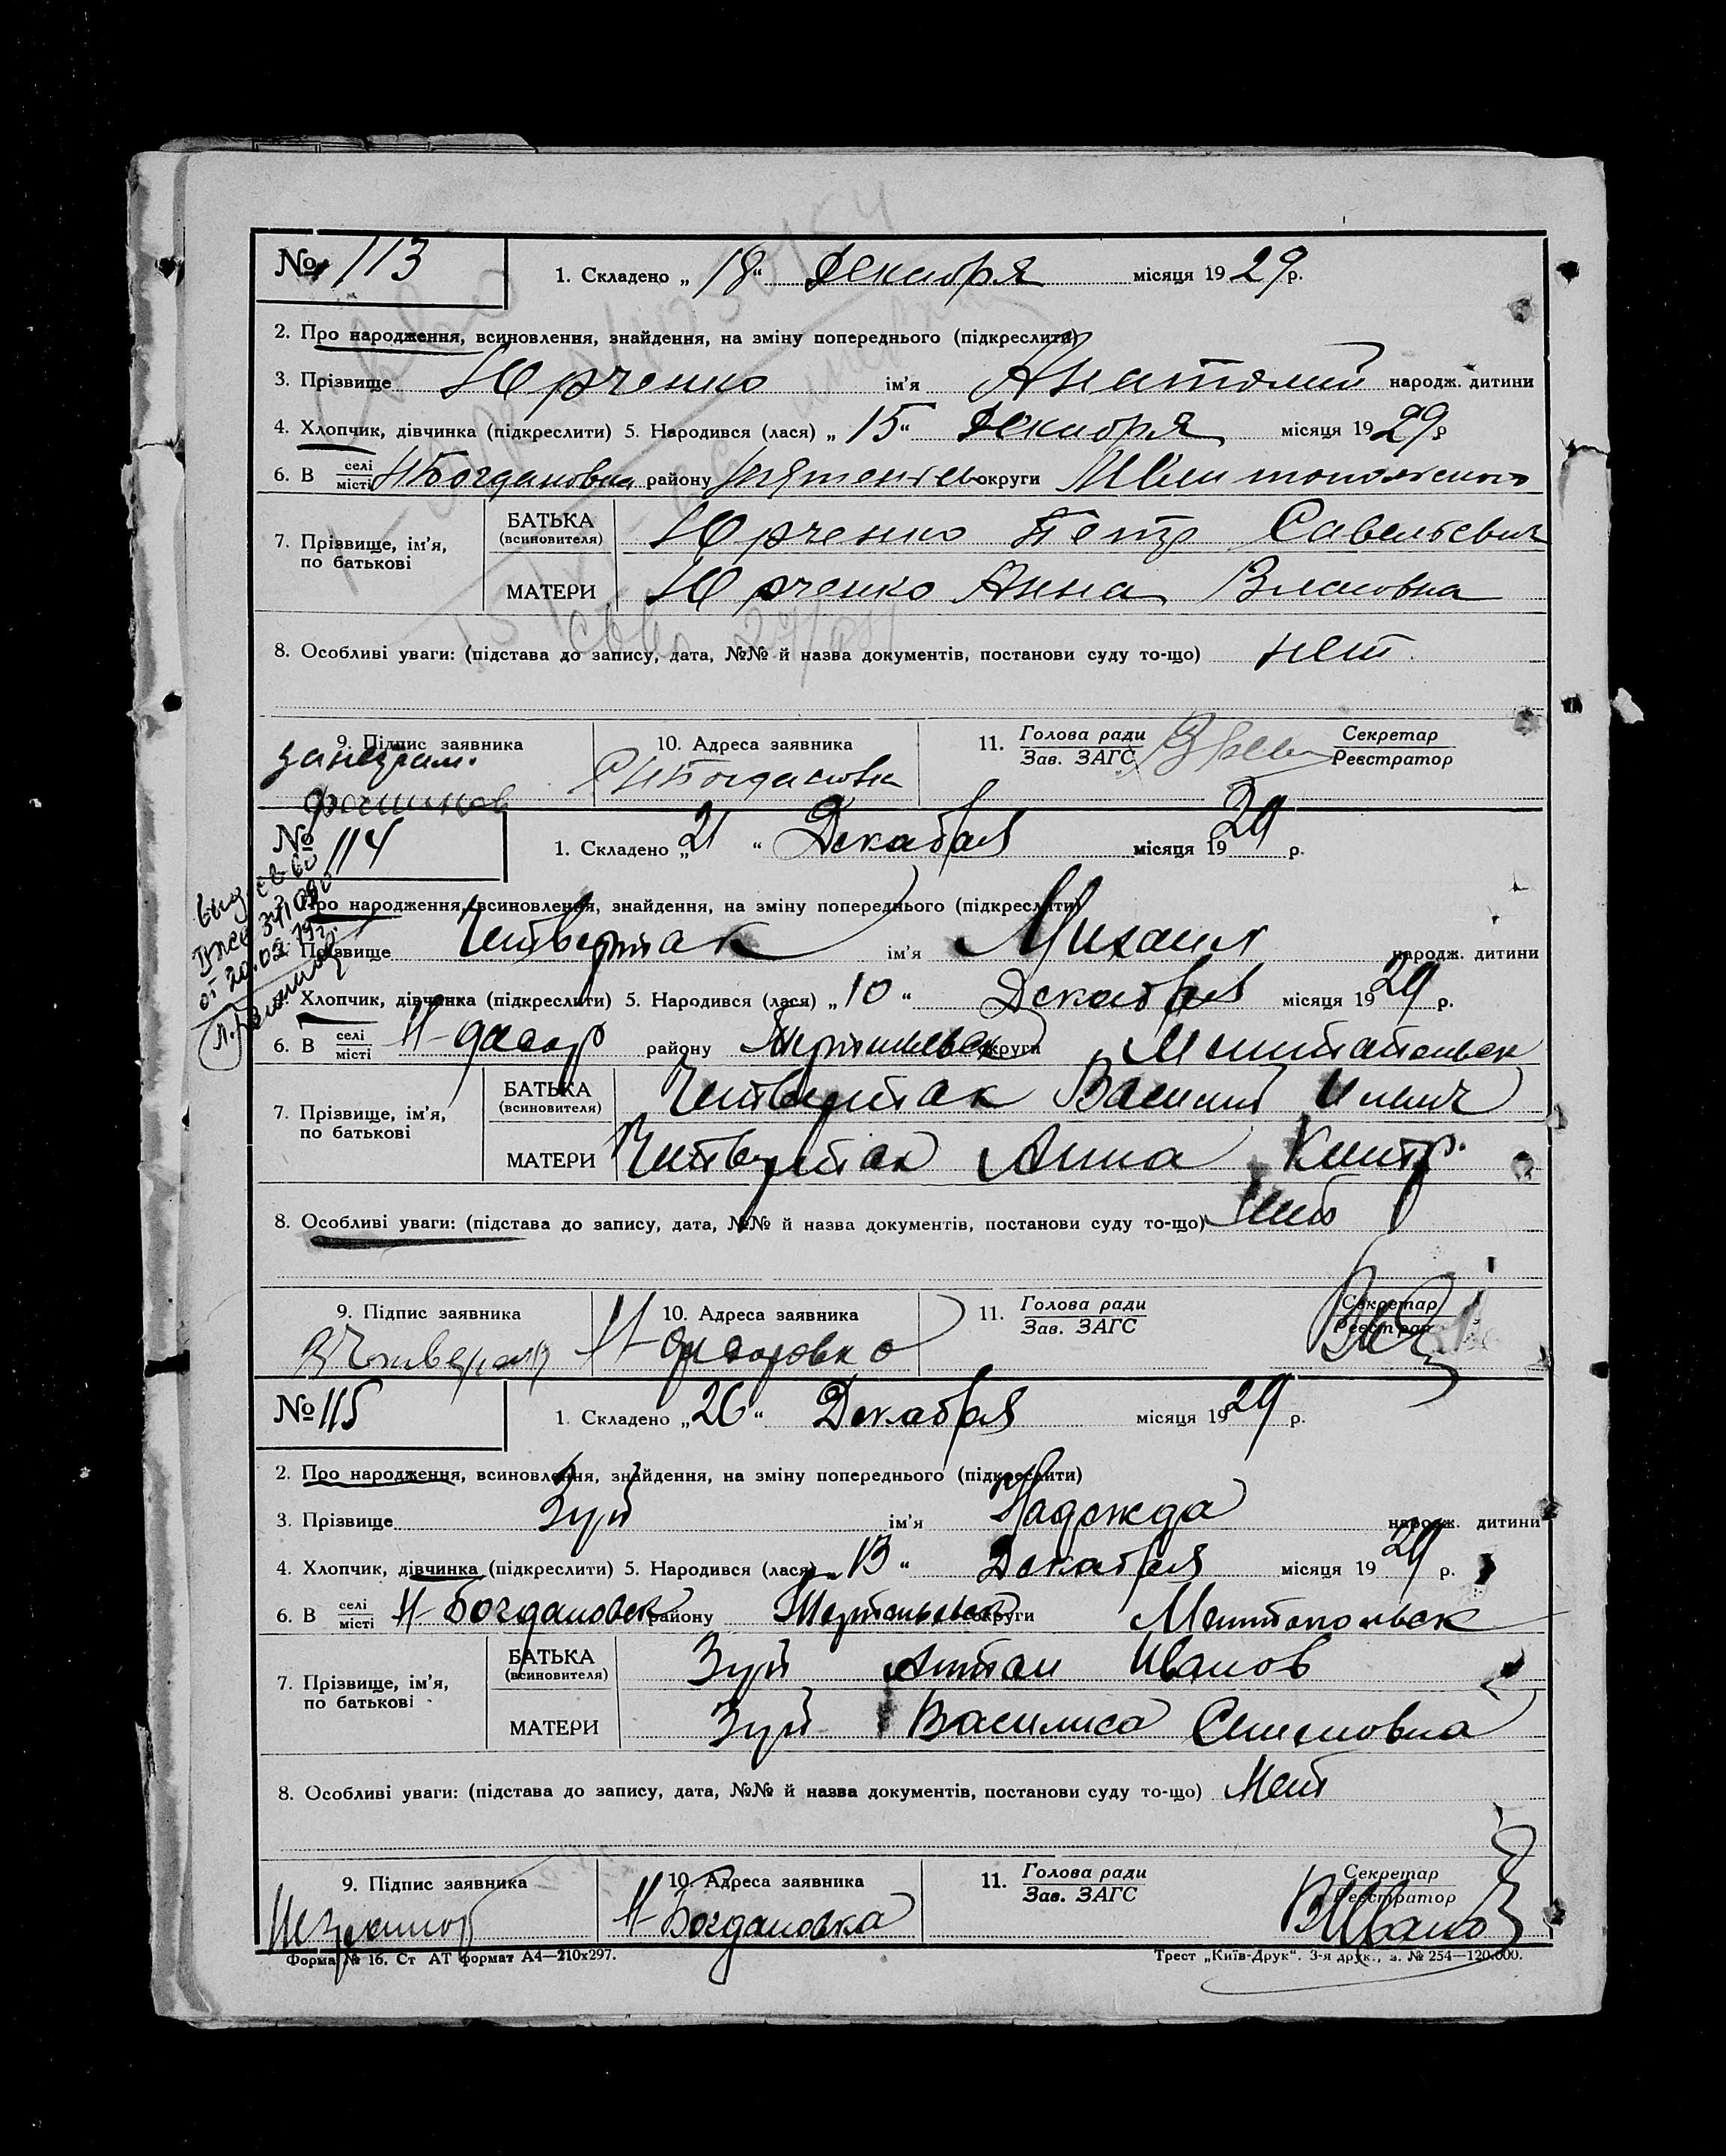 № 113
1. Складено „18“ Декабря місяця 1929 р.
2. Про народження, всиновлення, знайдення, на зміну попереднього (підкреслити)
3. Прізвище Юрченко ім’я Анатолий народж. дитини
4. Хлопчик, дівчинка (підкреслити) 5. Народився (лася) „15“ Декабря місяця 1929 р
6. В селі місті Н Богдановка району округи
7. Прізвище, ім’я, по батькові
БАТЬКА (всиновителя) Юрченко Петр Савельевич
МАТЕРИ Юрченко Анна Власовна
8. Особливі уваги: (підстава до запису, дата, №№ й назва документів, постанови суду то-що) нет
9. Підпис заявника 10. Адреса заявника 11. Голова ради Зав. ЗАГС Секретар Реєстратор
за неграм. Н Богдановка
№ 114
1. Складено „21“ Декабря місяця 1929 р.
Про народження, всиновлення, знайдення, на зміну попереднього (підкреслити)
Прізвище Читвертак ім’я Михаил народж. дитини
Хлопчик, дівчинка (підкреслити) 5. Народився (лася) „10“ Декабря місяця 1929 р.
6. В селі місті району округи Мелитопольск
7. Прізвище, ім’я, по батькові
БАТЬКА (всиновителя) Читвертак Василий Ильич
МАТЕРИ Читвертак Анна
8. Особливі уваги: (підстава до запису, дата, №№ й назва документів, постанови суду то-що)
9. Підпис заявника 10. Адреса заявника 11. Голова ради Зав. ЗАГС Секретар Реєстратор
№ 115
1. Складено „26“ Декабря місяця 1929 р.
2. Про народження, всиновлення, знайдення, на зміну попереднього (підкреслити)
3. Прізвище Зуй ім’я Надежда народж. дитини
4. Хлопчик, дівчинка (підкреслити) 5. Народився (лася) „13“ Декабря місяця 1929 р.
6. В селі місті Н-Богдановск району округи Мелитопольск
7. Прізвище, ім’я, по батькові
БАТЬКА (всиновителя) Зуй Антон Иванов
МАТЕРИ Зуй Василиса Семеновна
8. Особливі уваги: (підстава до запису, дата, №№ й назва документів, постанови суду то-що) Нет
9. Підпис заявника 10. Адреса заявника 11. Голова ради Зав. ЗАГС Секретар Реєстратор
Н-Богдановка
Форма № 16. Ст АТ формат А4—210х297. Трест „Київ-Друк“. 3-я друк., з. № 254—120.000.